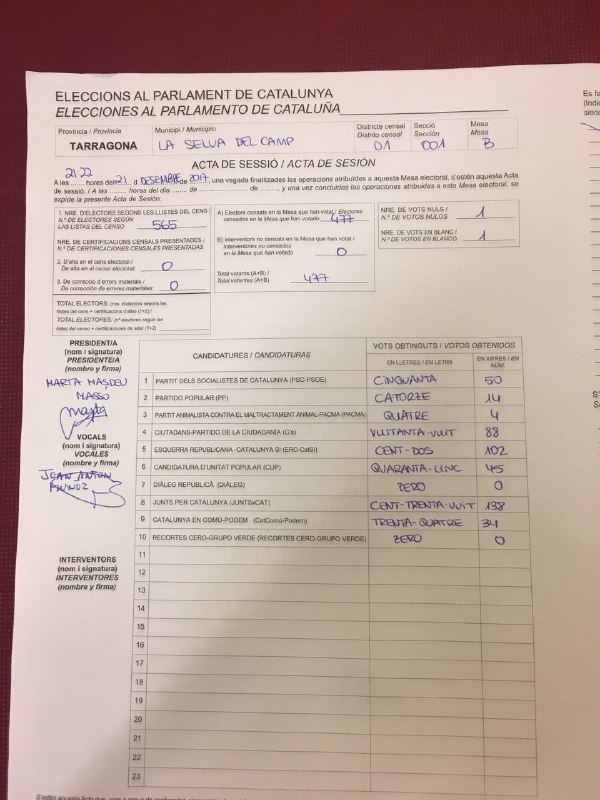 ELECCIONS AL PARLAMENT DE CATALUNYA
ELECCIONES AL PARLAMENTO DE CATALUÑA
Província / Provincia
TARRAGONA
Municipi / Municipio
LA SELVA DEL CAMP
Districte censal
Distrito censal
01
Secció
Sección
001
Mesa
Mesa
B
ACTA DE SESSIÓ / ACTA DE SESIÓN
A les 21:22 hores del 21 d DESEMBRE de 2017, una vegada finalitzades les operacions atribuïdes a aquesta Mesa electoral, s'estén aquesta Acta
de sessió: / A las ........ horas del día ....... de ................ de ........, y una vez concluidas las operaciones atribuidas a esta Mesa electoral, se
expide la presente Acta de Sesión:
1. NRE. D'ELECTORS SEGONS LES LLISTES DEL CENS /
N.º DE ELECTORES SEGÚN
LAS LISTAS DEL CENSO 565
NRE. DE CERTIFICACIONS CENSALS PRESENTADES /
N.º DE CERTIFICACIONES CENSALES PRESENTADAS
2. D'alta en el cens electoral /
De alta en el censo electoral: 0
3. De correcció d'errors materials /
De corrección de errores materiales: 0
TOTAL ELECTORS: (nre. d'electors segons les
llistes del cens + certificacions d'alta) (1+2) /
TOTAL ELECTORES: (nº electores según las
listas del censo + certificaciones de alta) (1+2)
A) Electors censats en la Mesa que han votat / Electores
censados en la Mesa que han votado 477
B) Interventors no censats en la Mesa que han votat /
Interventores no censados
en la Mesa que han votado 0
Total votants (A+B) /
Total votantes (A+B) 477
NRE. DE VOTS NULS /
N.º DE VOTOS NULOS 1
NRE. DE VOTS EN BLANC /
N.º DE VOTOS EN BLANCO 1
PRESIDENT/A
(nom i signatura)
PRESIDENTE/A
(nombre y firma)
MARTA MASDEU
MASSO
VOCALS
(nom i signatura)
VOCALES
(nombre y firma)
JOAN ANTON
MUÑOZ
INTERVENTORS
(nom i signatura)
INTERVENTORES
(nombre y firma)
CANDIDATURES / CANDIDATURAS
VOTS OBTINGUTS / VOTOS OBTENIDOS
EN LLETRES / EN LETRA
EN XIFRES / EN NÚM.
1 PARTIT DELS SOCIALISTES DE CATALUNYA (PSC-PSOE) CINQUANTA 50
2 PARTIDO POPULAR (PP) CATORZE 14
3 PARTIT ANIMALISTA CONTRA EL MALTRACTAMENT ANIMAL-PACMA (PACMA) QUATRE 4
4 CIUTADANS-PARTIDO DE LA CIUDADANÍA (C's) VUITANTA-VUIT 88
5 ESQUERRA REPUBLICANA -CATALUNYA SÍ (ERC-CatSí) CENT-DOS 102
6 CANDIDATURA D'UNITAT POPULAR (CUP) QUARANTA-CINC 45
7 DIÀLEG REPUBLICÀ (DIÀLEG) ZERO 0
8 JUNTS PER CATALUNYA (JUNTSxCAT) CENT-TRENTA-VUIT 138
9 CATALUNYA EN COMÚ-PODEM (CatComú-Podem) TRENTA-QUATRE 34
10 RECORTES CERO-GRUPO VERDE (RECORTES CERO-GRUPO VERDE) ZERO 0
11
12
13
14
15
16
17
18
19
20
21
22
23
Es fa
(Indi
siend